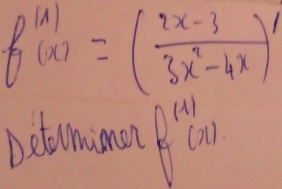 f^{(1)}(x) = \left( \frac{2x-3}{3x^2-4x} \right)'
Déterminer f^{(1)}(x).